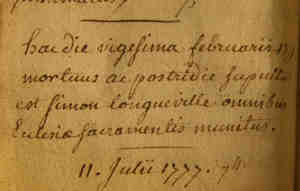 hac die vigesima februarii
mortuus ac postridie sepultus
est simon longueville omnibus
Eclesiæ sacramentis munitus.
11. Julii 1777. 74